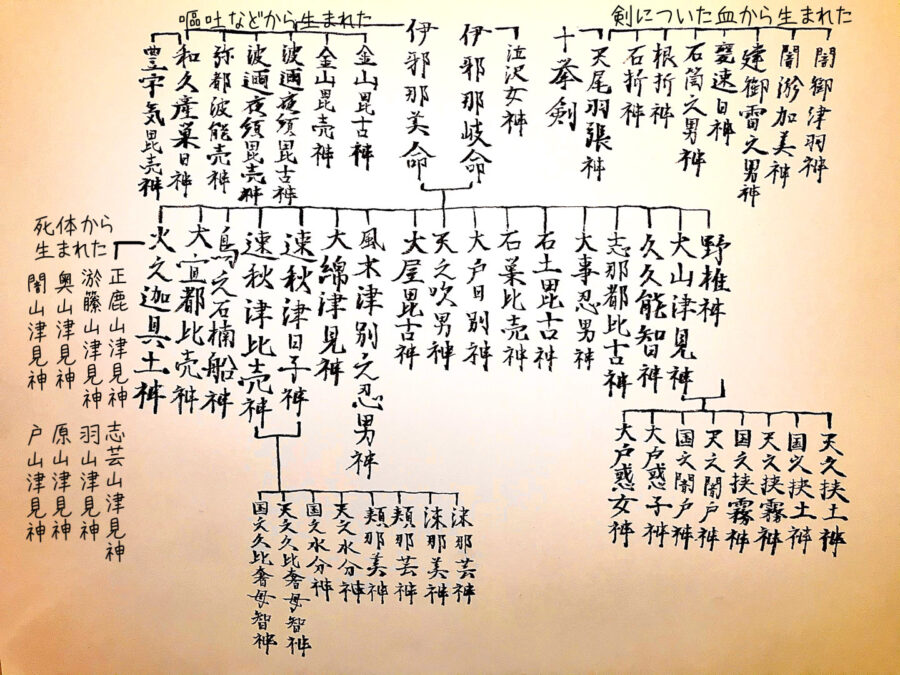 剣についた血から生まれた
闇御津羽神
闇淤加美神
建御雷之男神
甕速日神
石筒之男神
根折神
石折神
天尾羽張神
十挙剣
泣沢女神
伊邪那岐命
伊邪那美命
嘔吐などから生まれた
金山毘古神
金山毘売神
波邇夜須毘古神
波邇夜須毘売神
弥都波能売神
和久産巣日神
豊宇気毘売神
野椎神
大山津見神
久久能智神
志那都比古神
大事忍男神
石土毘古神
石巣比売神
大戸日別神
天之吹男神
大屋毘古神
風木津別之忍男神
大綿津見神
速秋津日子神
速秋津比売神
鳥之石楠船神
大宜都比売神
火之迦具土神
死体から
生まれた
正鹿山津見神
淤縢山津見神
奥山津見神
闇山津見神
志芸山津見神
羽山津見神
原山津見神
戸山津見神
天之狭土神
国之狭土神
天之狭霧神
国之狭霧神
天之闇戸神
国之闇戸神
大戸惑子神
大戸惑女神
沫那芸神
沫那美神
頬那芸神
頬那美神
天之水分神
国之水分神
天之久比奢母智神
国之久比奢母智神